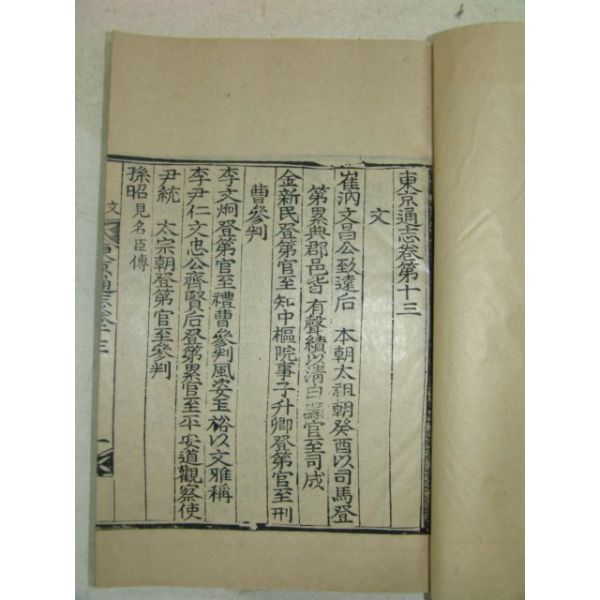 東京通志卷第十三
文
崔汭文昌公致遠后 本朝太祖朝癸酉以司馬登
第累典郡邑皆有聲績以淸白官至司成
金新民登第官至知中樞院事子升卿登第官至刑
曹參判
李文炯登第官至禮曹參判風姿玉裕以文雅稱
李尹仁文忠公齊賢后登第累官至平安道觀察使
尹統 太宗朝登第官至參判
孫昭見名臣傳
文 東京通志卷十三